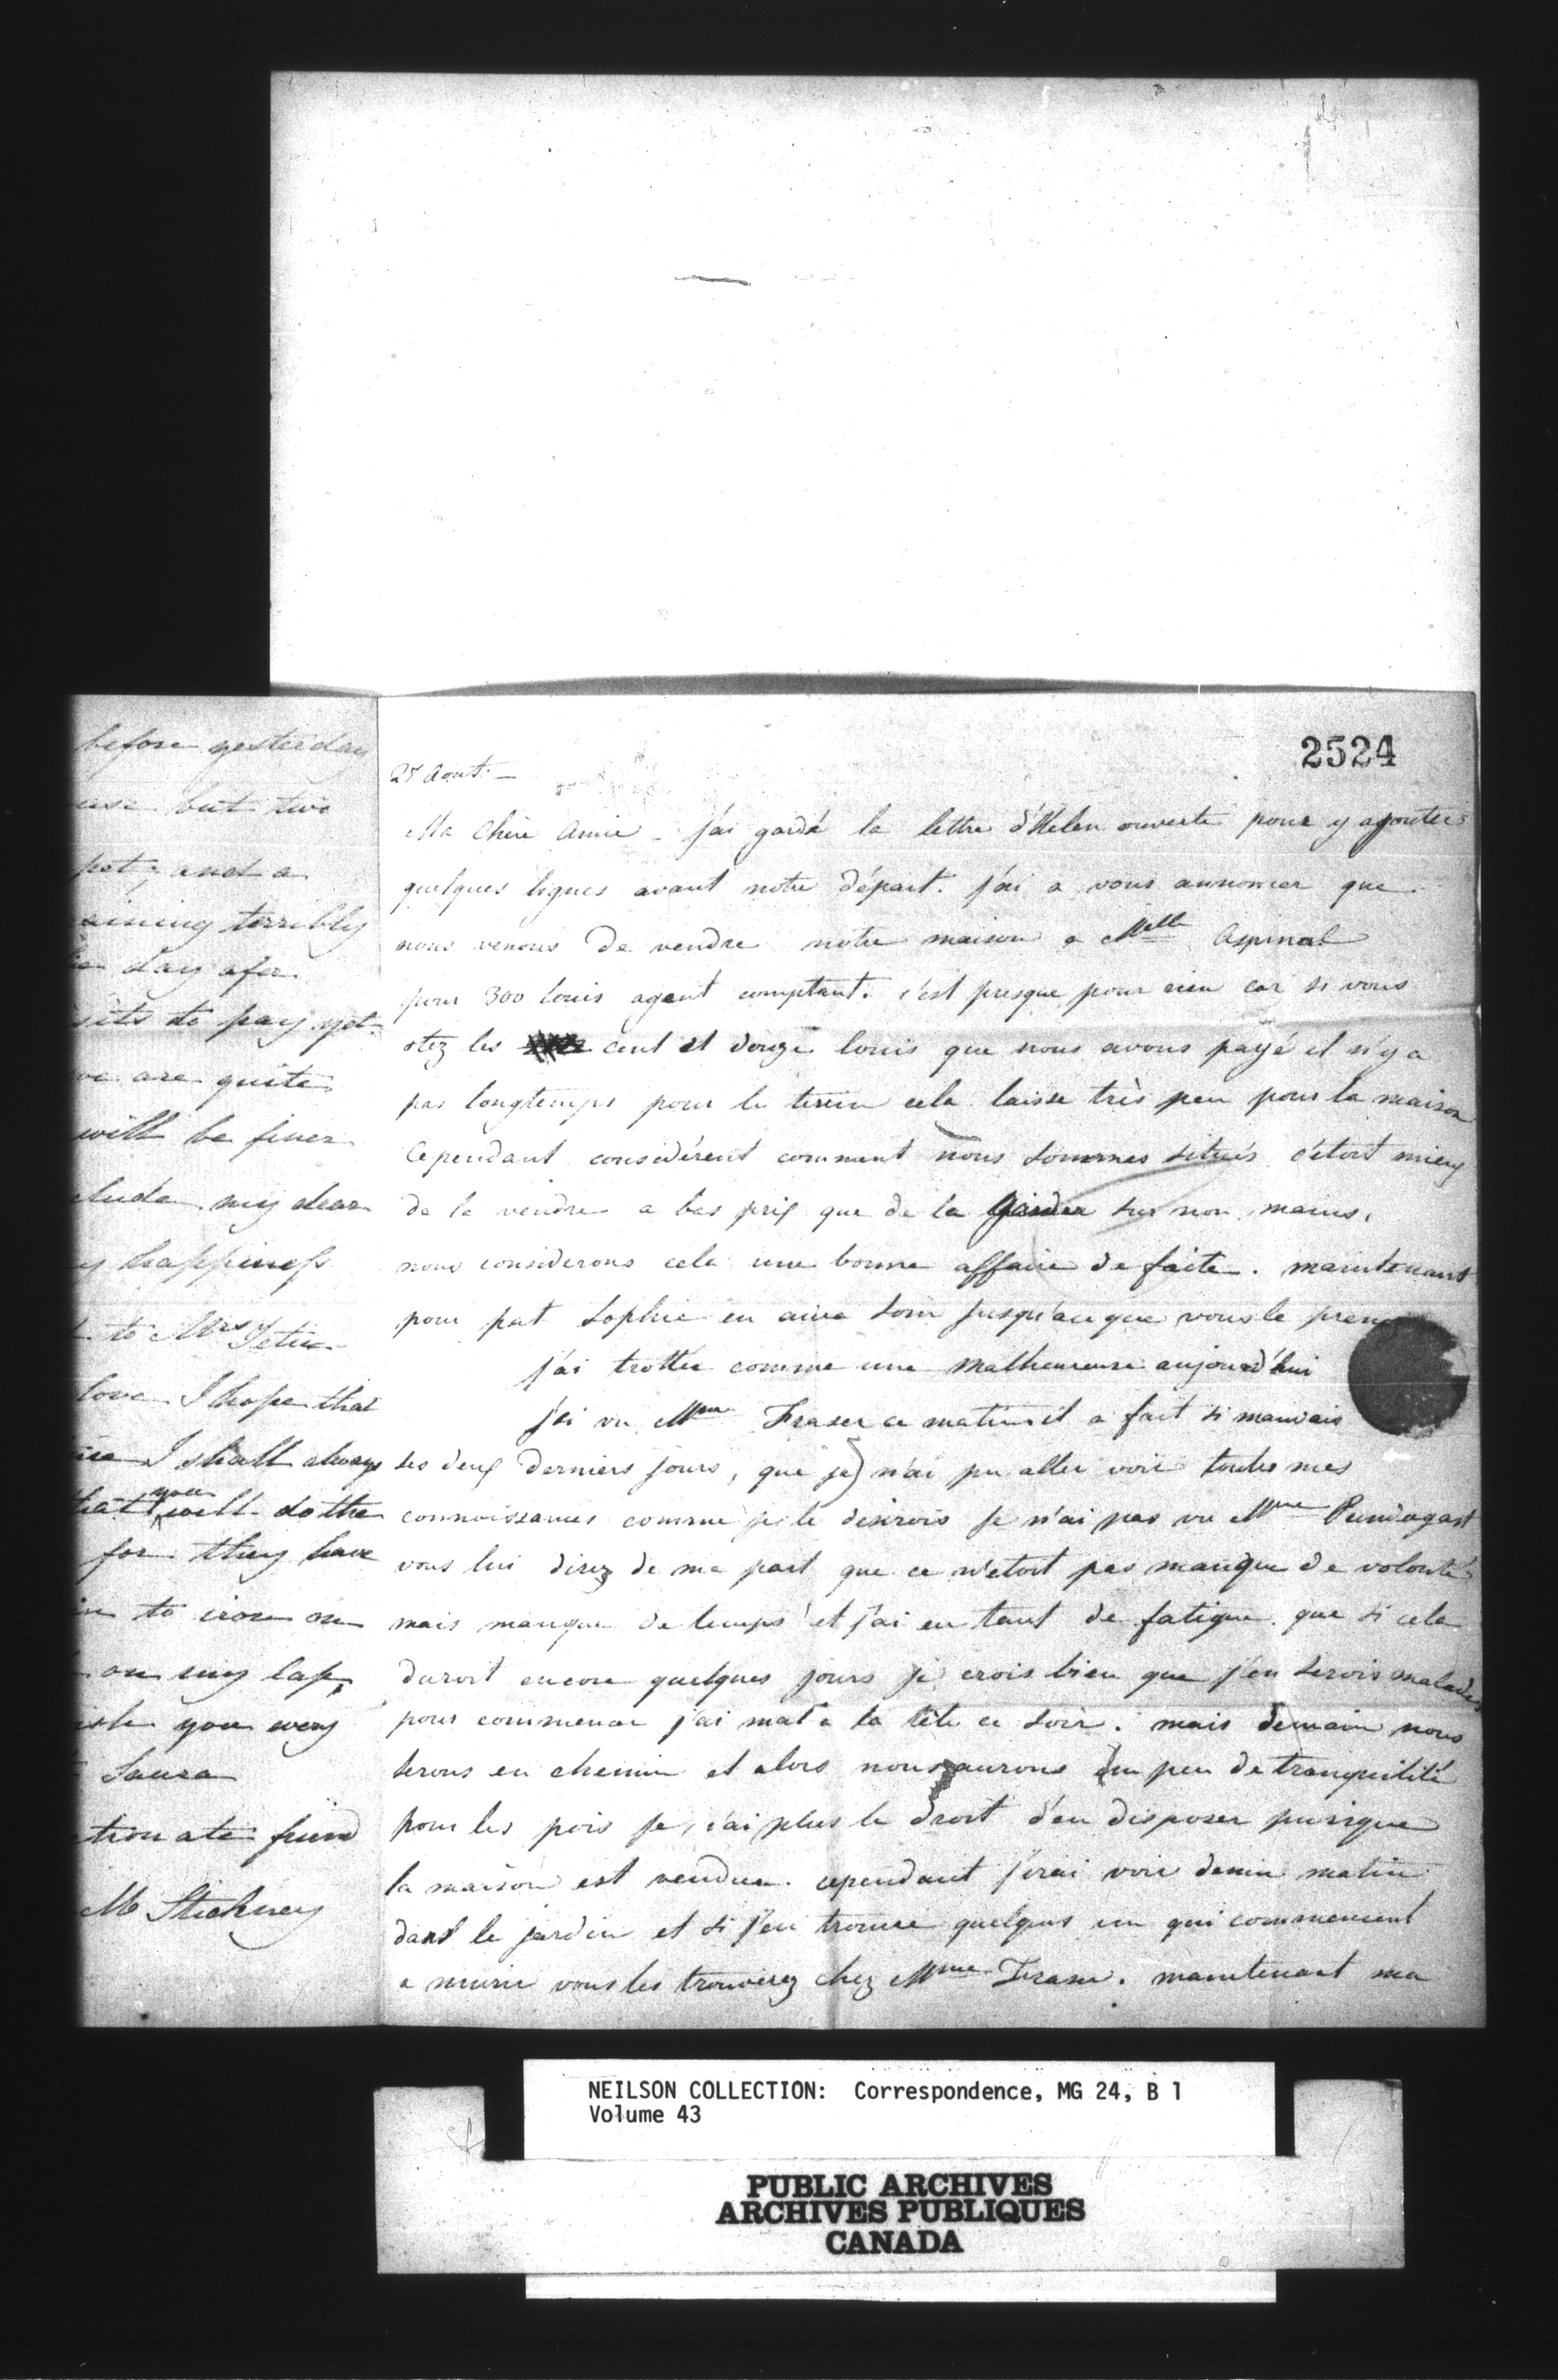 before yesterday
but two
pot; and a
aining terribly
day afer
sits to pay yet
are quite
will be finer
clude my dear
happiness
to Mrs
love I hope that
I shall always
you
will do the
for they have
to iron on
on my lap,
you very
Laura
tionate friend
M Stickney
2524
25 Aout. —
Ma Chère Amie - j'ai gardé la lettre d'Helen ouverte pour y ajouter
quelques lignes avant notre départ. j'ai a vous annoncer que
nous venons de vendre notre maison a Melle Aspinal
pour 300 louis agent comptant. c'est presque pour rien car si vous
otez les cent et douze louis que nous avons payé il n'y a
pas longtemps pour le terrein cela laisse très peu pour la maison
Cependant considérent comment nous sommes situés c'étoit mieux
de la vendre a bas prix que de la garder sur nos mains.
nous considerons cela une bonne affaire de faite. maintenant
pour pat Sophie en aura soin jusqu'ace que vous le
j'ai trottée comme une malheureuse aujourd'hui
j'ai vu Mme Fraser ce matin il a fait si mauvais
les deux derniers jours, que je n'ai pu aller voir toutes mes
connoissances comme je le desirois je n'ai pas vu Mme
vous lui direz de ma part que ce n'etoit pas manque de volonté
mais manque de temps et j'ai eu tant de fatigue que si cela
duroit encore quelques jours je crois bien que j'en serois malade
pour commencer j'ai mal a la tête ce soir. mais demain nous
serons en chemin et alors nous aurons un peu de tranquilité
pour les pois je n'ai plus le droit d'en disposer puisque
la maison est vendue. cependant j'irai voir demin matin
dans le jardin et si j'en trouve quelques un qui commencent
a murir vous les trouverez chez Mme Fraser. maintenant ma
NEILSON COLLECTION: Correspondence, MG 24, B 1
Volume 43
PUBLIC ARCHIVES
ARCHIVES PUBLIQUES
CANADA